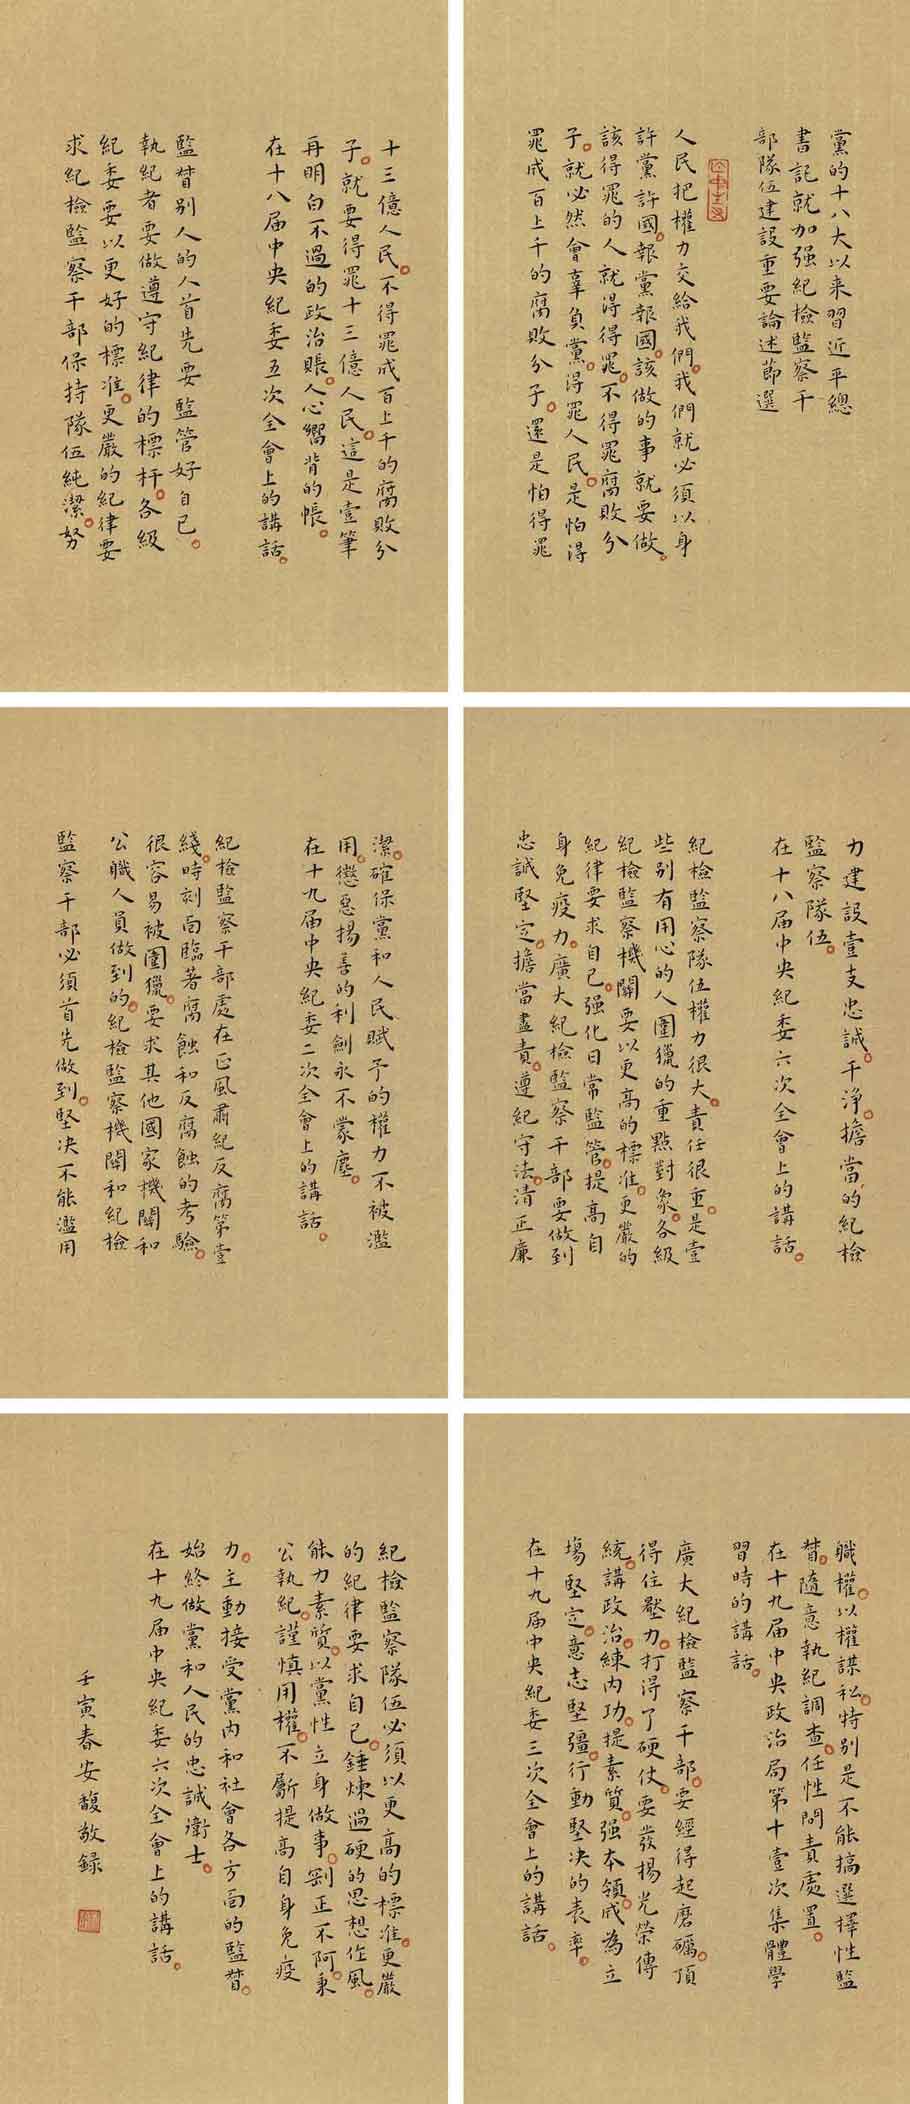 黨的十八大以来習近平總
書記就加强紀檢監察干
部隊伍建設重要論述節選
人民把權力交給我們。我們就必須以身
許黨許國。報黨報國。該做的事就要做。
該得罪的人就得得罪。不得罪腐敗分
子。就必然會辜負黨。得罪人民。是怕得
罪成百上千的腐敗分子。還是怕得罪
十三億人民。不得罪成百上千的腐敗分
子。就要得罪十三億人民。這是壹筆
再明白不過的政治賬。人心嚮背的帳。
在十八届中央紀委五次全會上的講話。
監督别人的人首先要監管好自己。
執紀者要做遵守紀律的標杆。各級
紀委要以更好的標准。更嚴的紀律要
求紀檢監察干部保持隊伍純潔。努
力建設壹支忠誠。干净。擔當的紀檢
監察隊伍。
在十八届中央紀委六次全會上的講話。
紀檢監察隊伍權力很大。責任很重。是壹
些别有用心的人圍獵的重點對象。各級
紀檢監察機關要以更高的標准。更嚴的
紀律要求自己。强化日常監管。提高自
身免疫力。廣大紀檢監察干部要做到
忠誠堅定。擔當盡責。遵紀守法。清正廉
潔。確保黨和人民賦予的權力不被濫
用。懲惡揚善的利劍永不蒙塵。
在十九届中央紀委二次全會上的講話。
紀檢監察干部處在正風肅紀反腐第壹
綫。時刻面臨著腐蝕和反腐蝕的考驗。
很容易被圍獵。要求其他國家機關和
公職人員做到的。紀檢監察機關和紀檢
監察干部必須首先做到。堅决不能濫用
職權。以權謀私。特别是不能搞選擇性監
督。隨意執紀調查。任性問責處置。
在十九届中央政治局第十壹次集體學
習時的講話。
廣大紀檢監察干部。要經得起磨礪。頂
得住壓力。打得了硬仗。要發揚光榮傳
統。講政治。練内功。提素質。强本領。成為立
場堅定。意志堅彊。行動堅决的表率。
在十九届中央紀委三次全會上的講話。
紀檢監察隊伍必須以更高的標准。更嚴
的紀律要求自己。錘煉過硬的思想作風。
能力素質。以黨性立身做事。剛正不阿。秉
公執紀。謹慎用權。不斷提高自身免疫
力。主動接受黨内和社會各方面的監督。
始終做黨和人民的忠誠衛士。
在十九届中央紀委六次全會上的講話。
壬寅春安馥敬録